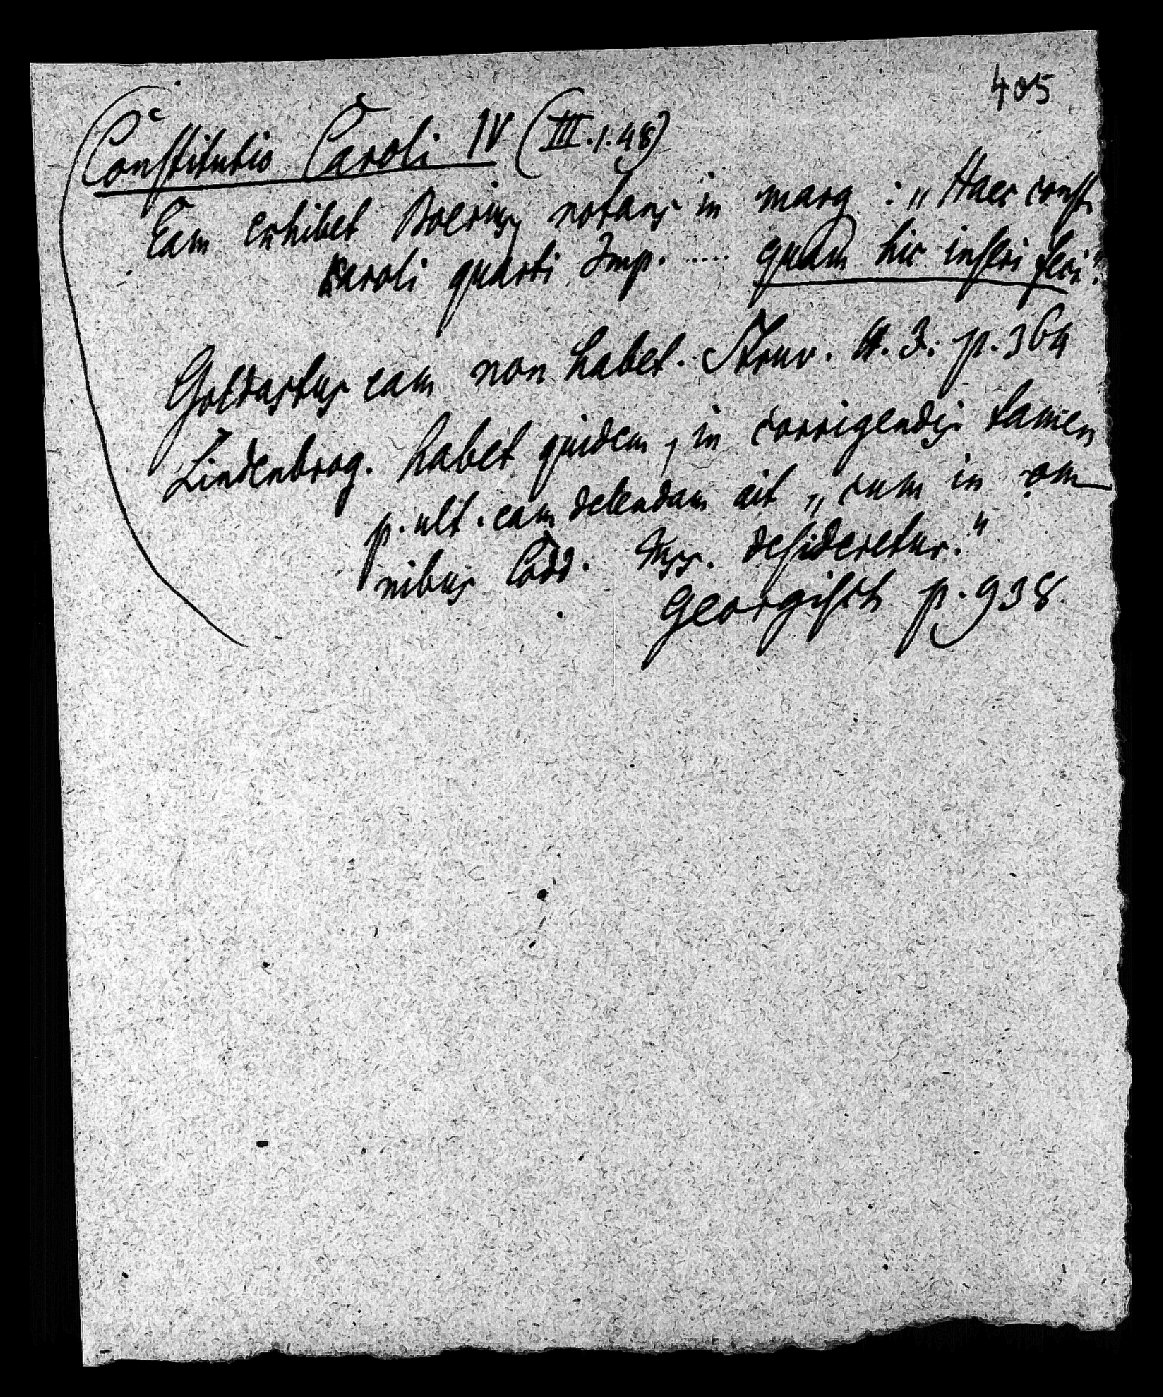 405
Constitutio Caroli IV (III.1.48)
Eam exhibet Boerius notans in marg: „Haec const.
Karoli quarti Imp. ..... quam hic inseri feci."
Goldastus eam non habet. Struv. p. 364
Lindenbrog. habet quidem, in corrigendis tamen
p. ult. eam delendam ait „cum in om
nibus Codd. Mss. desideretur."
Georgisch p. 938.